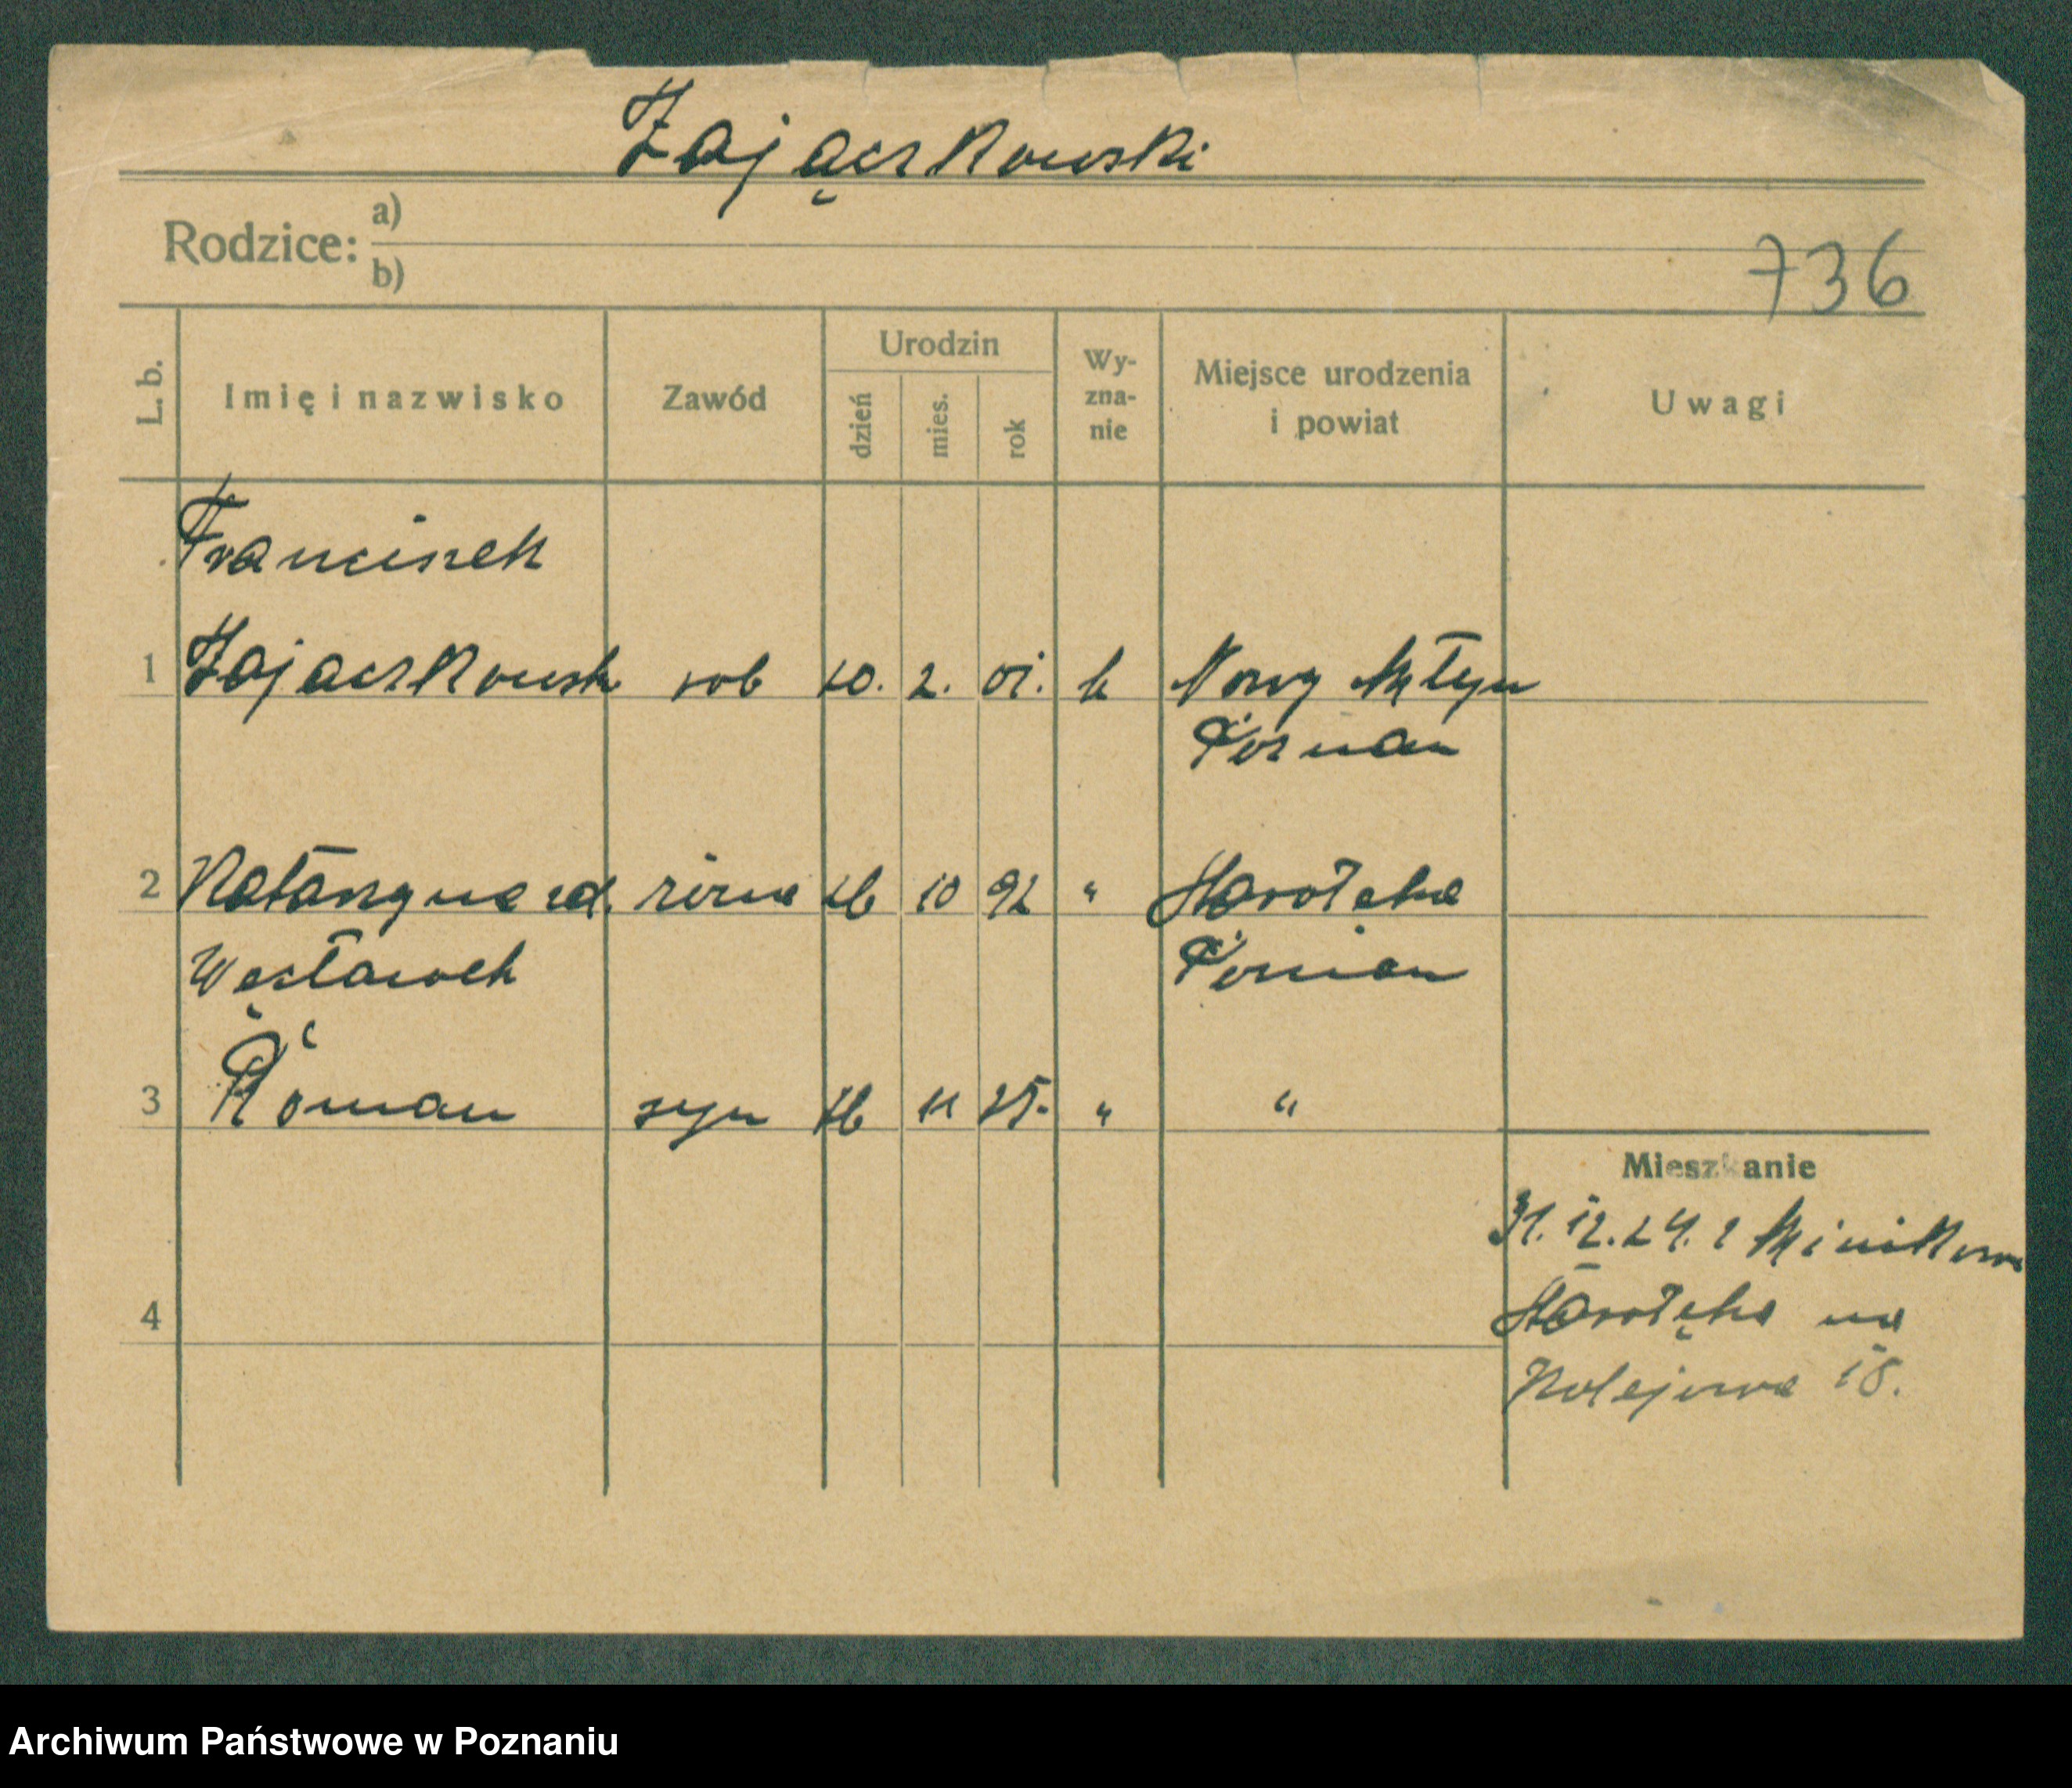 Zajączkowski
Rodzice: a)
b)
736
L. b.
Imię i nazwisko
Zawód
Urodzin
dzień
mies.
rok
Wy-
zna-
nie
Miejsce urodzenia
i powiat
Uwagi
Franciszek
1 Zajaczkowski rob 10. 2. 01. k Nowy Młyn
Poznan
2 Katarzyna zd. żona 10 92 " Starołęka
Poznan
3 Roman syn 11 25. " "
Mieszkanie
31.12.24. z Minikowa
Starołęka
4
Kolejowa 18.
Archiwum Państwowe w Poznaniu